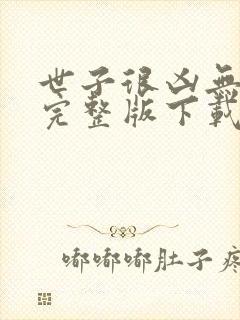 世子很凶無
完整版下載
嘟嘟嘟肚子疼